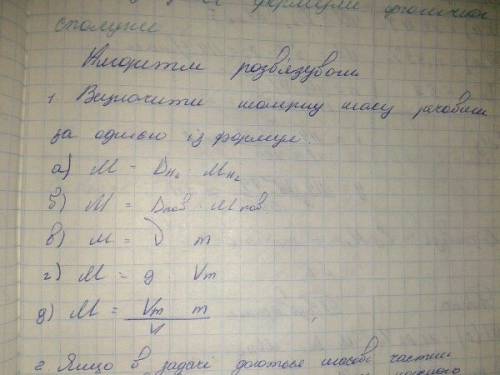 формули органічних
сполуки
Алгоритм розв'язування
1. Визначити молярну масу речовини
за однією із формул:
а) M = D H₂ M H₂
б) M = D пов · M пов
в) M = ν m
г) M = g Vm
д) M = Vm m / V
2. Якщо в задачі даються масові частки